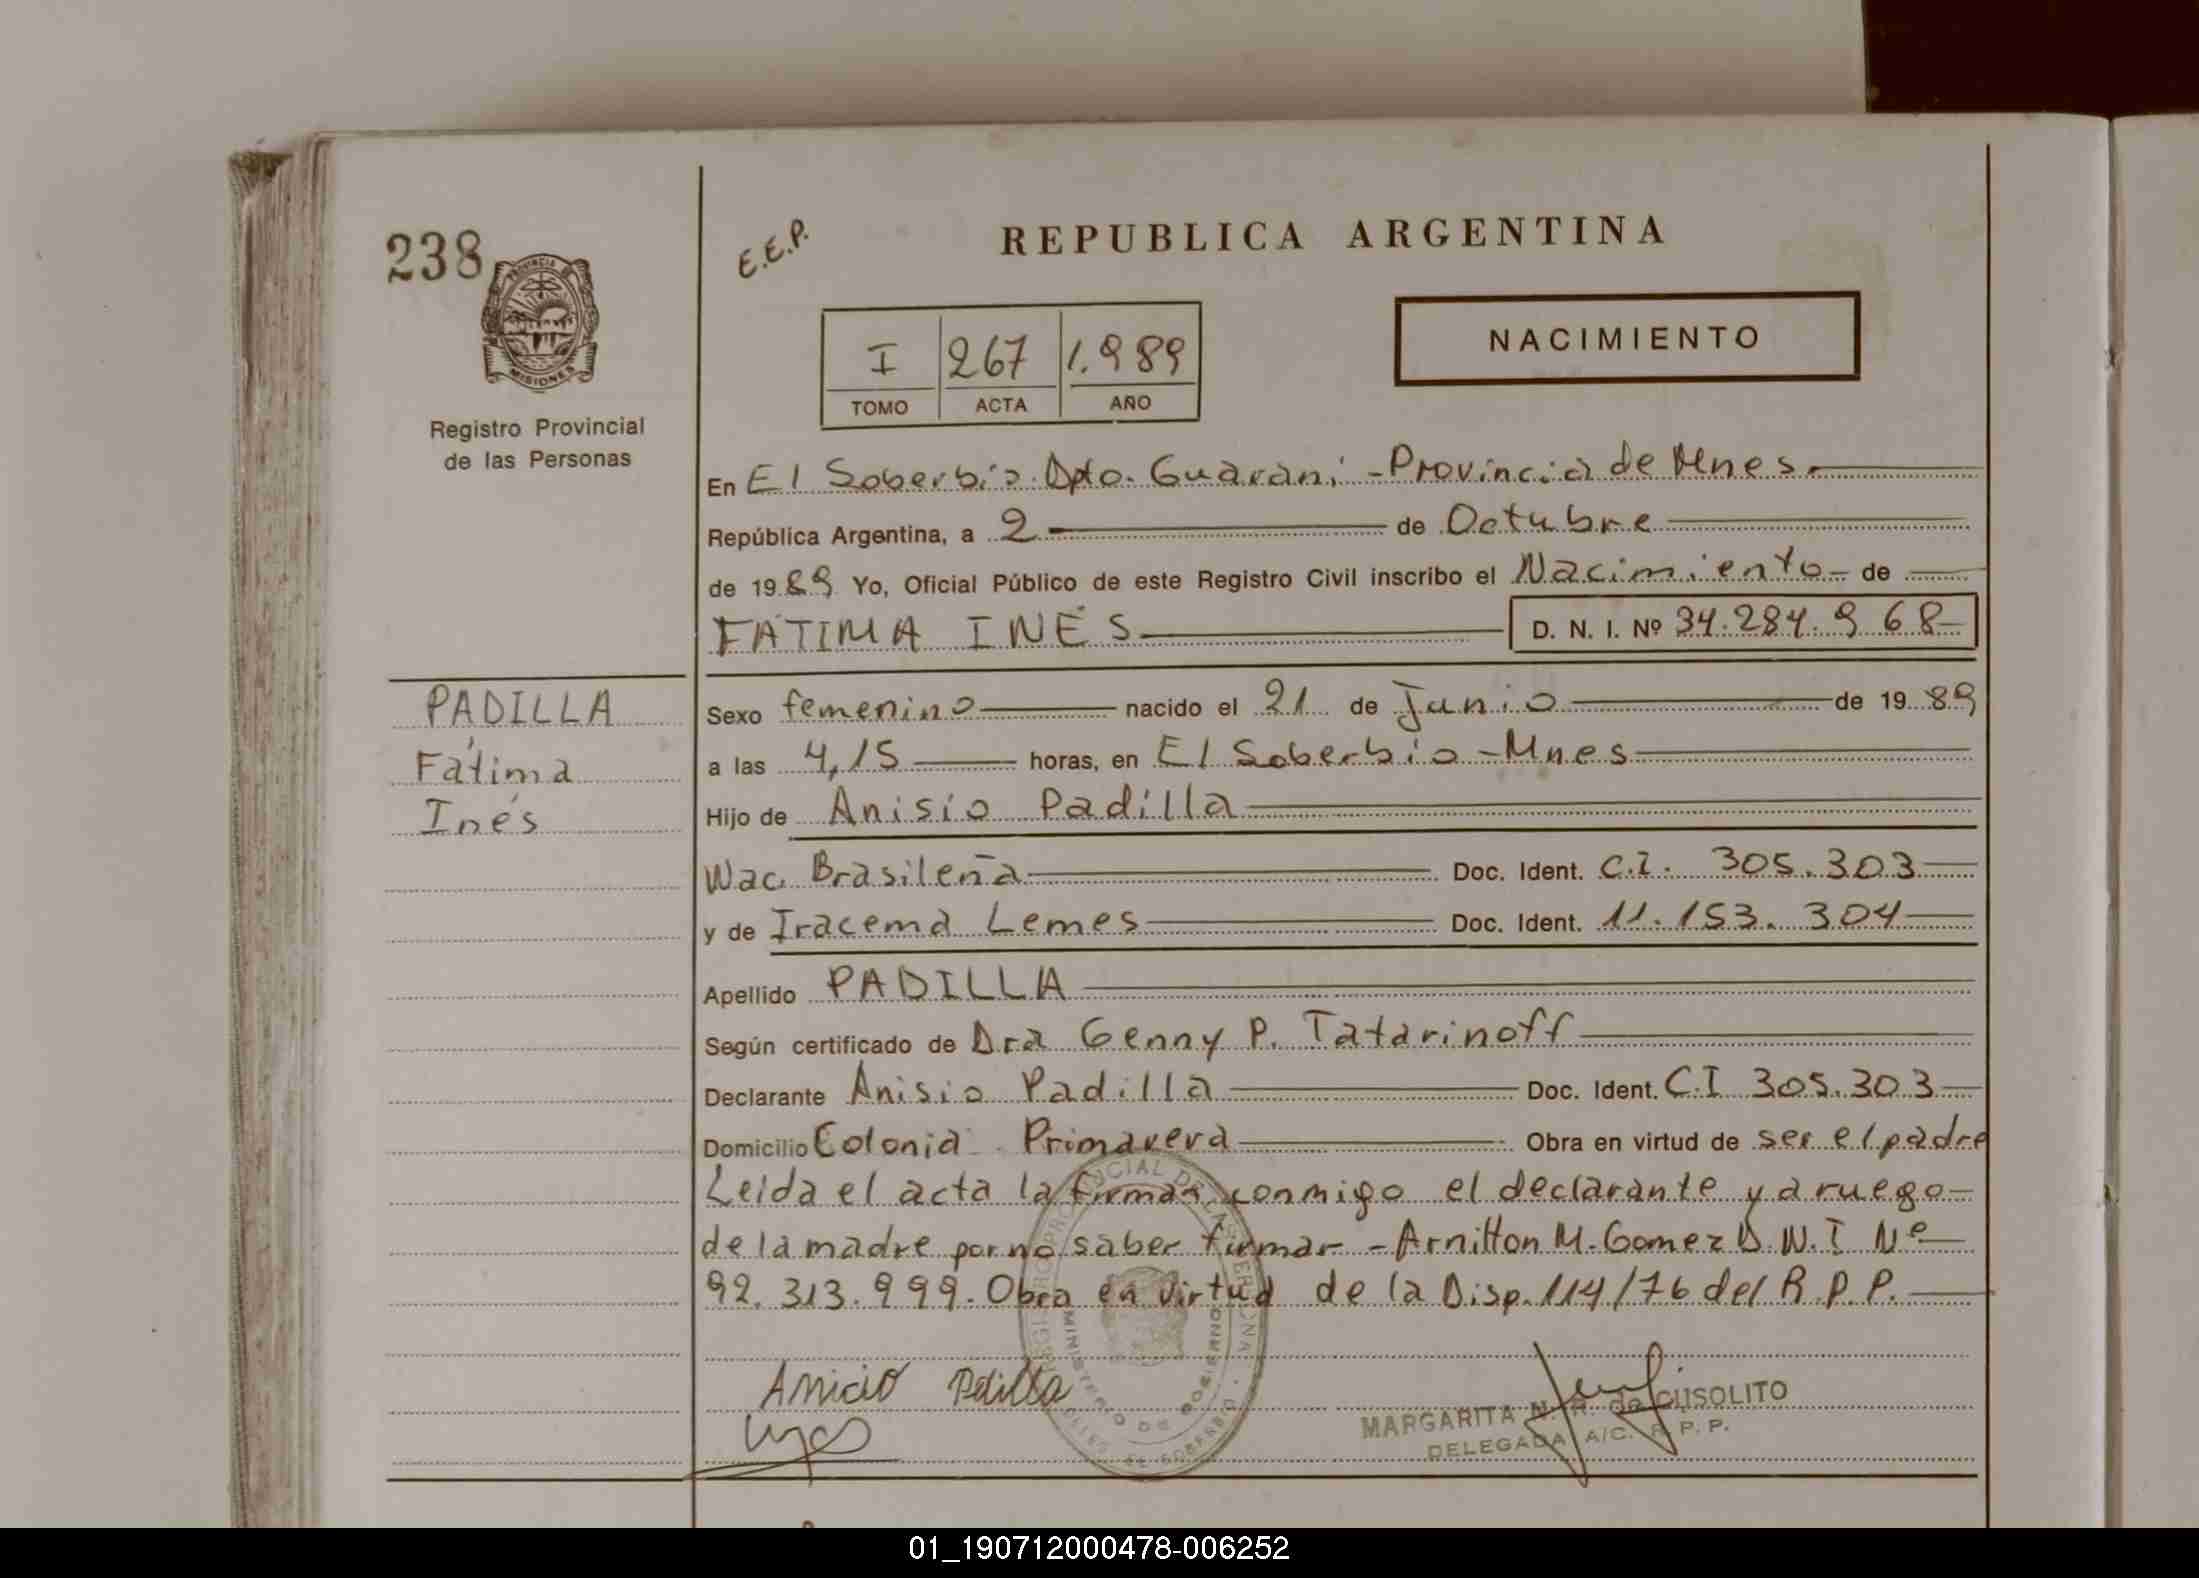 238
PROVINCIA DE
MISIONES
Registro Provincial
de las Personas
E.E.P.
REPUBLICA ARGENTINA
I 267 1.989
TOMO ACTA AÑO
NACIMIENTO
En El Soberbio. Dpto. Guaraní - Provincia de Mnes.
República Argentina, a 2 de Octubre
de 1989 Yo, Oficial Público de este Registro Civil inscribo el Nacimiento de
FÁTIMA INÉS D. N. I. Nº 34.284.968
PADILLA
Fátima
Inés
Sexo femenino nacido el 21 de Junio de 1989
a las 4,15 horas, en El Soberbio - Mnes
Hijo de Anisio Padilla
Nac. Brasileña Doc. Ident. C.I. 305.303
y de Iracema Lemes Doc. Ident. 11.153.304
Apellido PADILLA
Según certificado de Dra Genny P. Tatarinoff
Declarante Anisio Padilla Doc. Ident. C.I 305.303
Domicilio Colonia Primavera Obra en virtud de ser el padre
Leida el acta la firman conmigo el declarante y a ruego
de la madre por no saber firmar - Arnilton M. Gomez D.N.I Nº
92.313.999. Obra en virtud de la Disp. 114/76 del R.P.P.
Anicio Padilla
MARGARITA N. R. de CUSOLITO
DELEGADA A/C. R. P. P.
REGISTRO PROVINCIAL DE LAS PERSONAS
MINISTERIO DE GOBIERNO
EL SOBERBIO
01_190712000478-006252